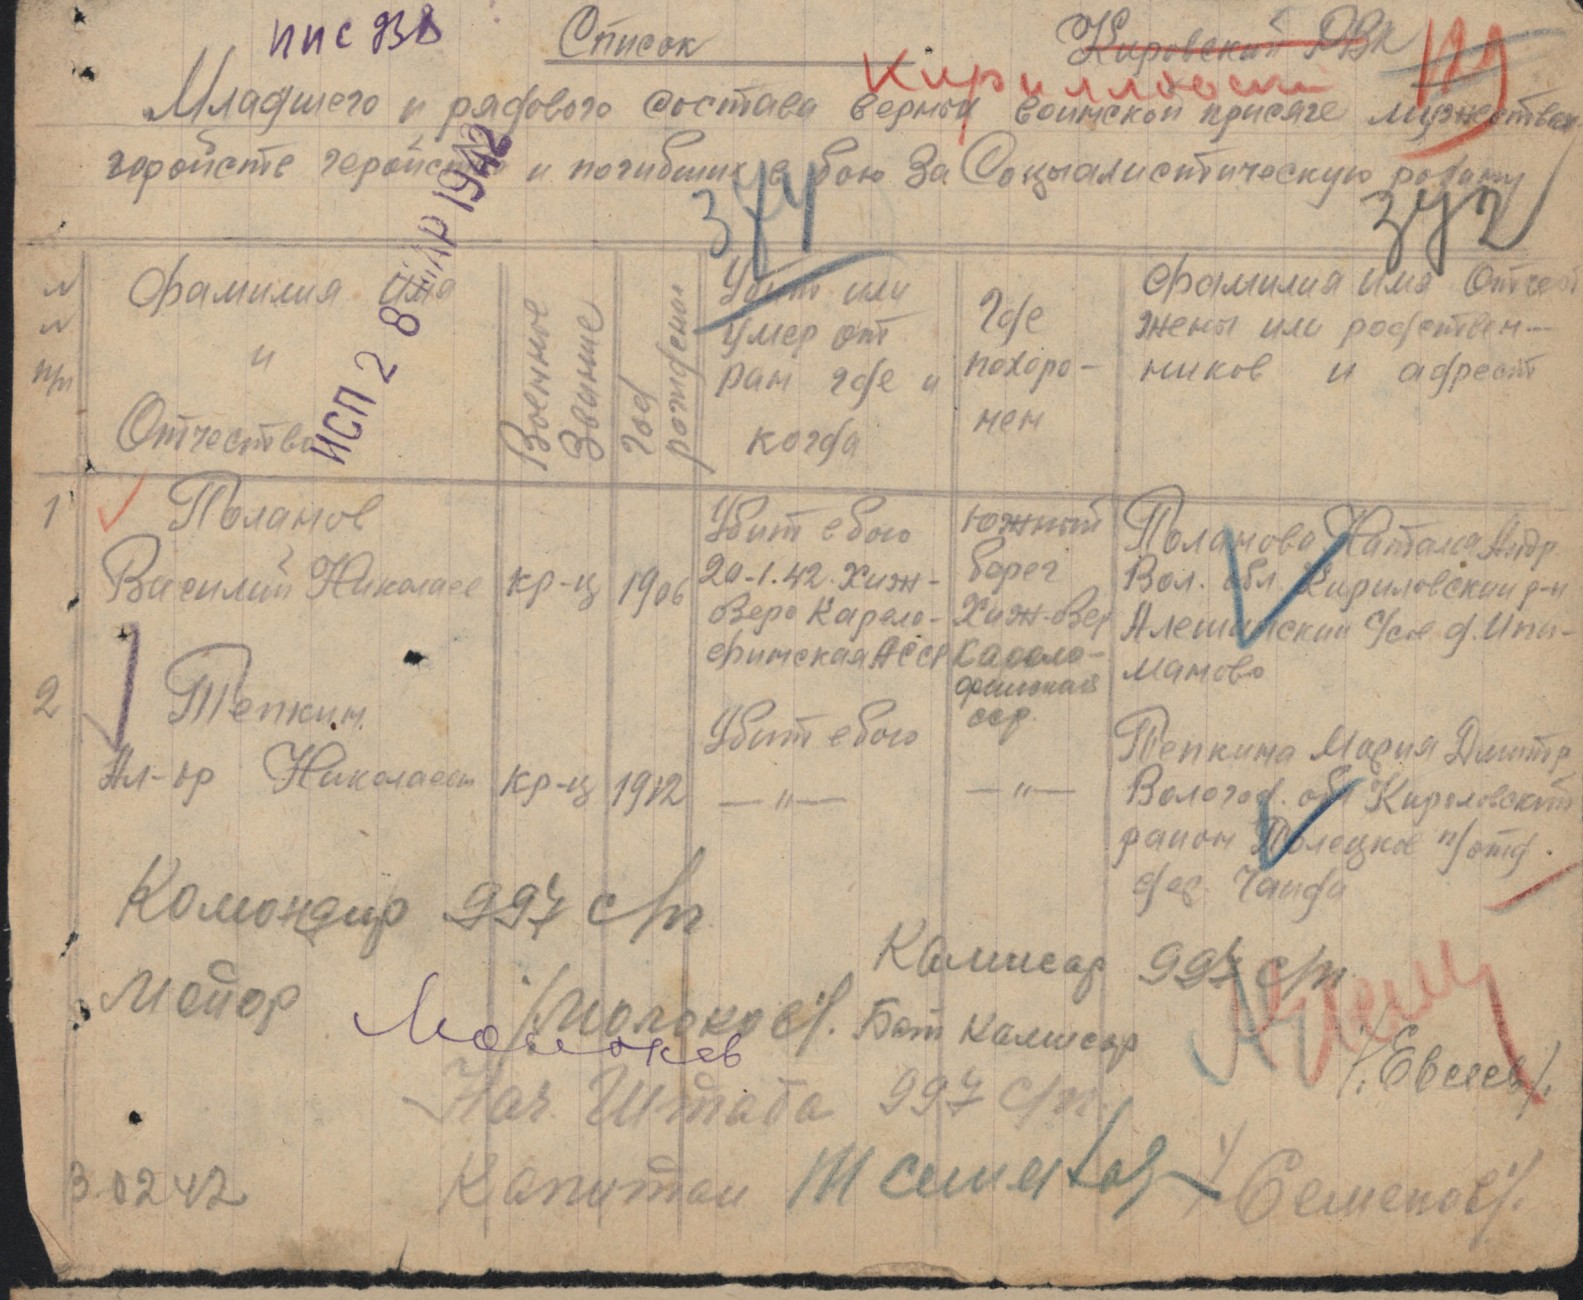 Список
Кировский РВК
Кирилловский
Младшего и рядового состава верной воинской присяге мужества
геройсте геройст и погибших в бою За Социалистическую родину
344
342
ИСП 28 МАР 1942
№ № п/п
Фамилия имя и Отчество
Военное Звание
Год рождения
Убит или умер от ран где и когда
Где похоро- нен
Фамилия имя Отчест жены или родствен- ников и адрест
1
Поланов
Василий Николаев
кр-ц
1906
Убит в бою
20-1.42. Хиж-
озеро Карело-
финская АССР
южный
берег
Хиж-Озер
Карело-
финская
сср.
Поланова Наталья Андр
Вол. обл. Кириловский р-н
Алешинский с/сов д. Ипи-
маново
2
Тепкин
Ал-др Николаевич
кр-ц
1912
Убит в бою
— " —
— " —
Тепкина Мария Дмитр
Вологод. обл Кириловский
район п/отд.
дер. Чанда
Командир 997 с/п
Майор
Молоков
/Молоков/.
Комисар 997 с/п
Бат Комисар
/.Евсеев/.
Нач. Штаба 997 с/п.
Капитан
/Семенов/.
3 02 42